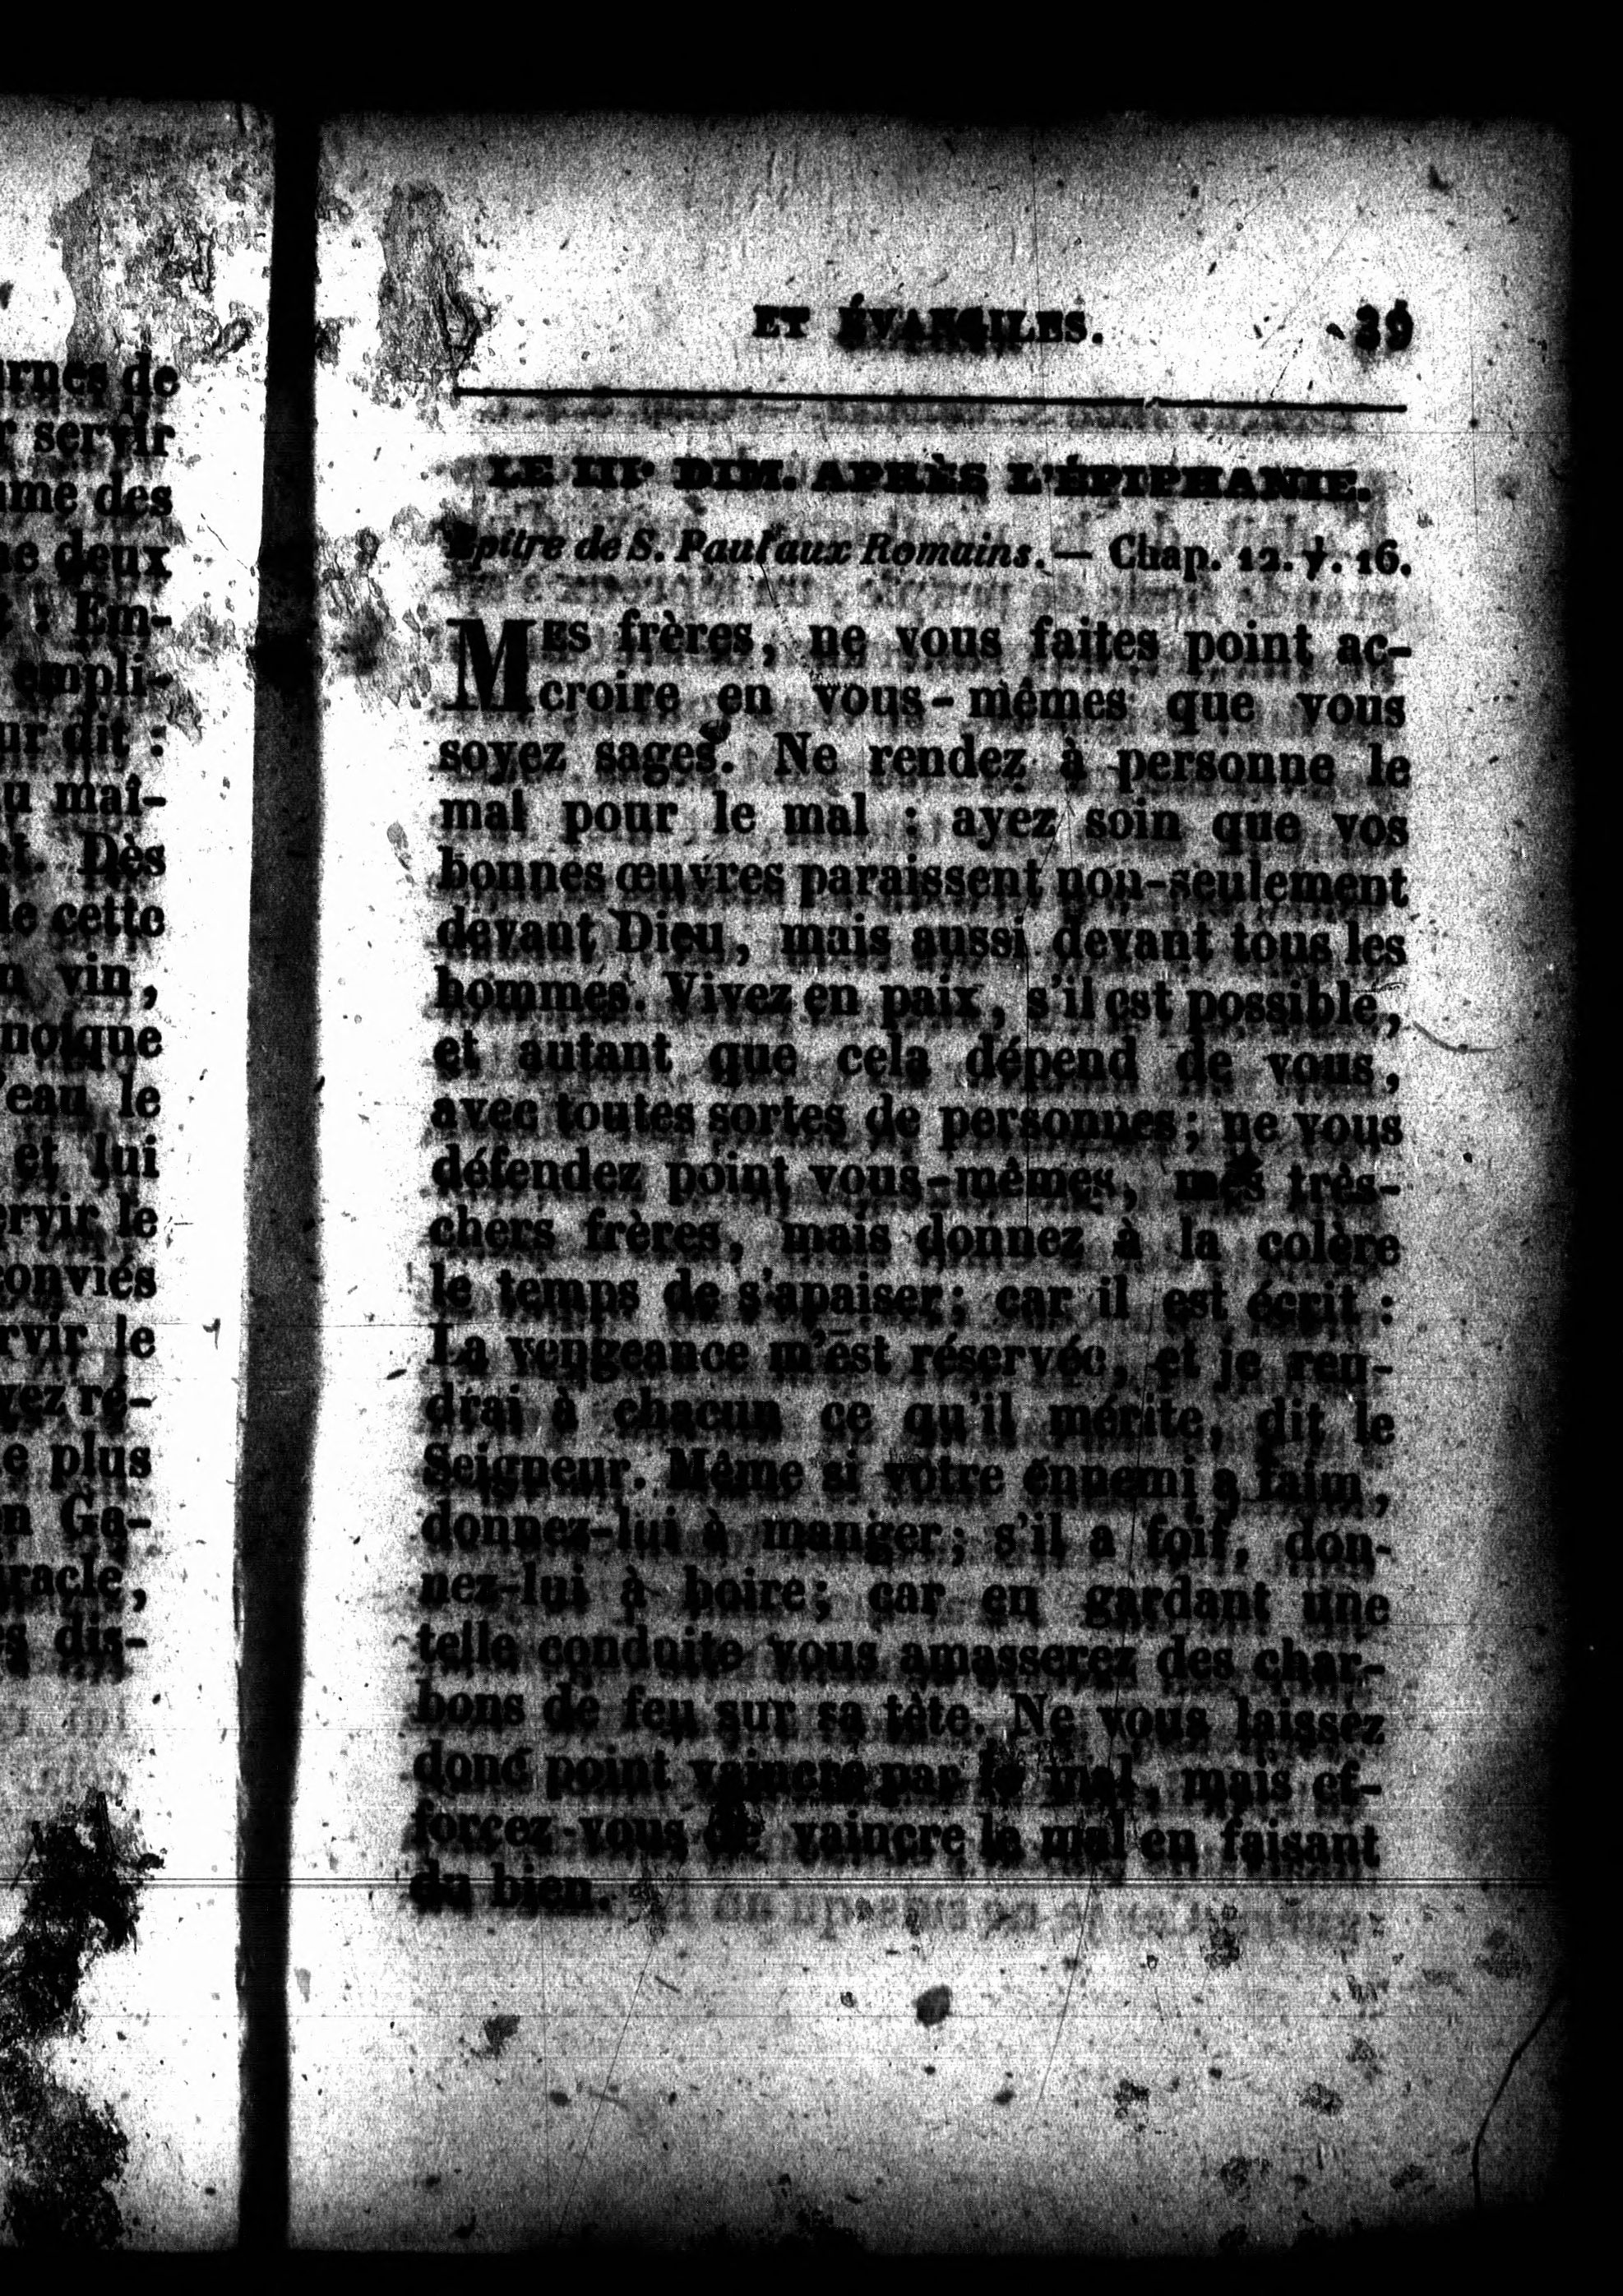 urnes de
r servir
me des
ne deux
t : Em-
empli-
ur dit :
u maî-
t. Dès
le cette
n vin,
uoique
'eau le
et lui
ervir le
conviés
rvir le
vez ré-
e plus
n Ga-
racle,
s dis-
ET ÉVANGILES. 39
LE IIIe DIM. APRÈS L'ÉPIPHANIE.
Épître de S. Paul aux Romains. — Chap. 12. ℣. 16.
MES frères, ne vous faites point ac-
croire en vous-mêmes que vous
soyez sages. Ne rendez à personne le
mal pour le mal : ayez soin que vos
bonnes œuvres paraissent non-seulement
devant Dieu, mais aussi devant tous les
hommes. Vivez en paix, s'il est possible,
et autant que cela dépend de vous,
avec toutes sortes de personnes; ne vous
défendez point vous-mêmes, mes très-
chers frères, mais donnez à la colère
le temps de s'apaiser; car il est écrit :
La vengeance m'est réservée, et je ren-
drai à chacun ce qu'il mérite, dit le
Seigneur. Même si votre ennemi a faim,
donnez-lui à manger; s'il a foif, don-
nez-lui à boire; car en gardant une
telle conduite vous amasserez des char-
bons de feu sur sa tête. Ne vous laissez
donc point vaincre par le mal, mais ef-
forcez-vous de vaincre le mal en faisant
du bien.